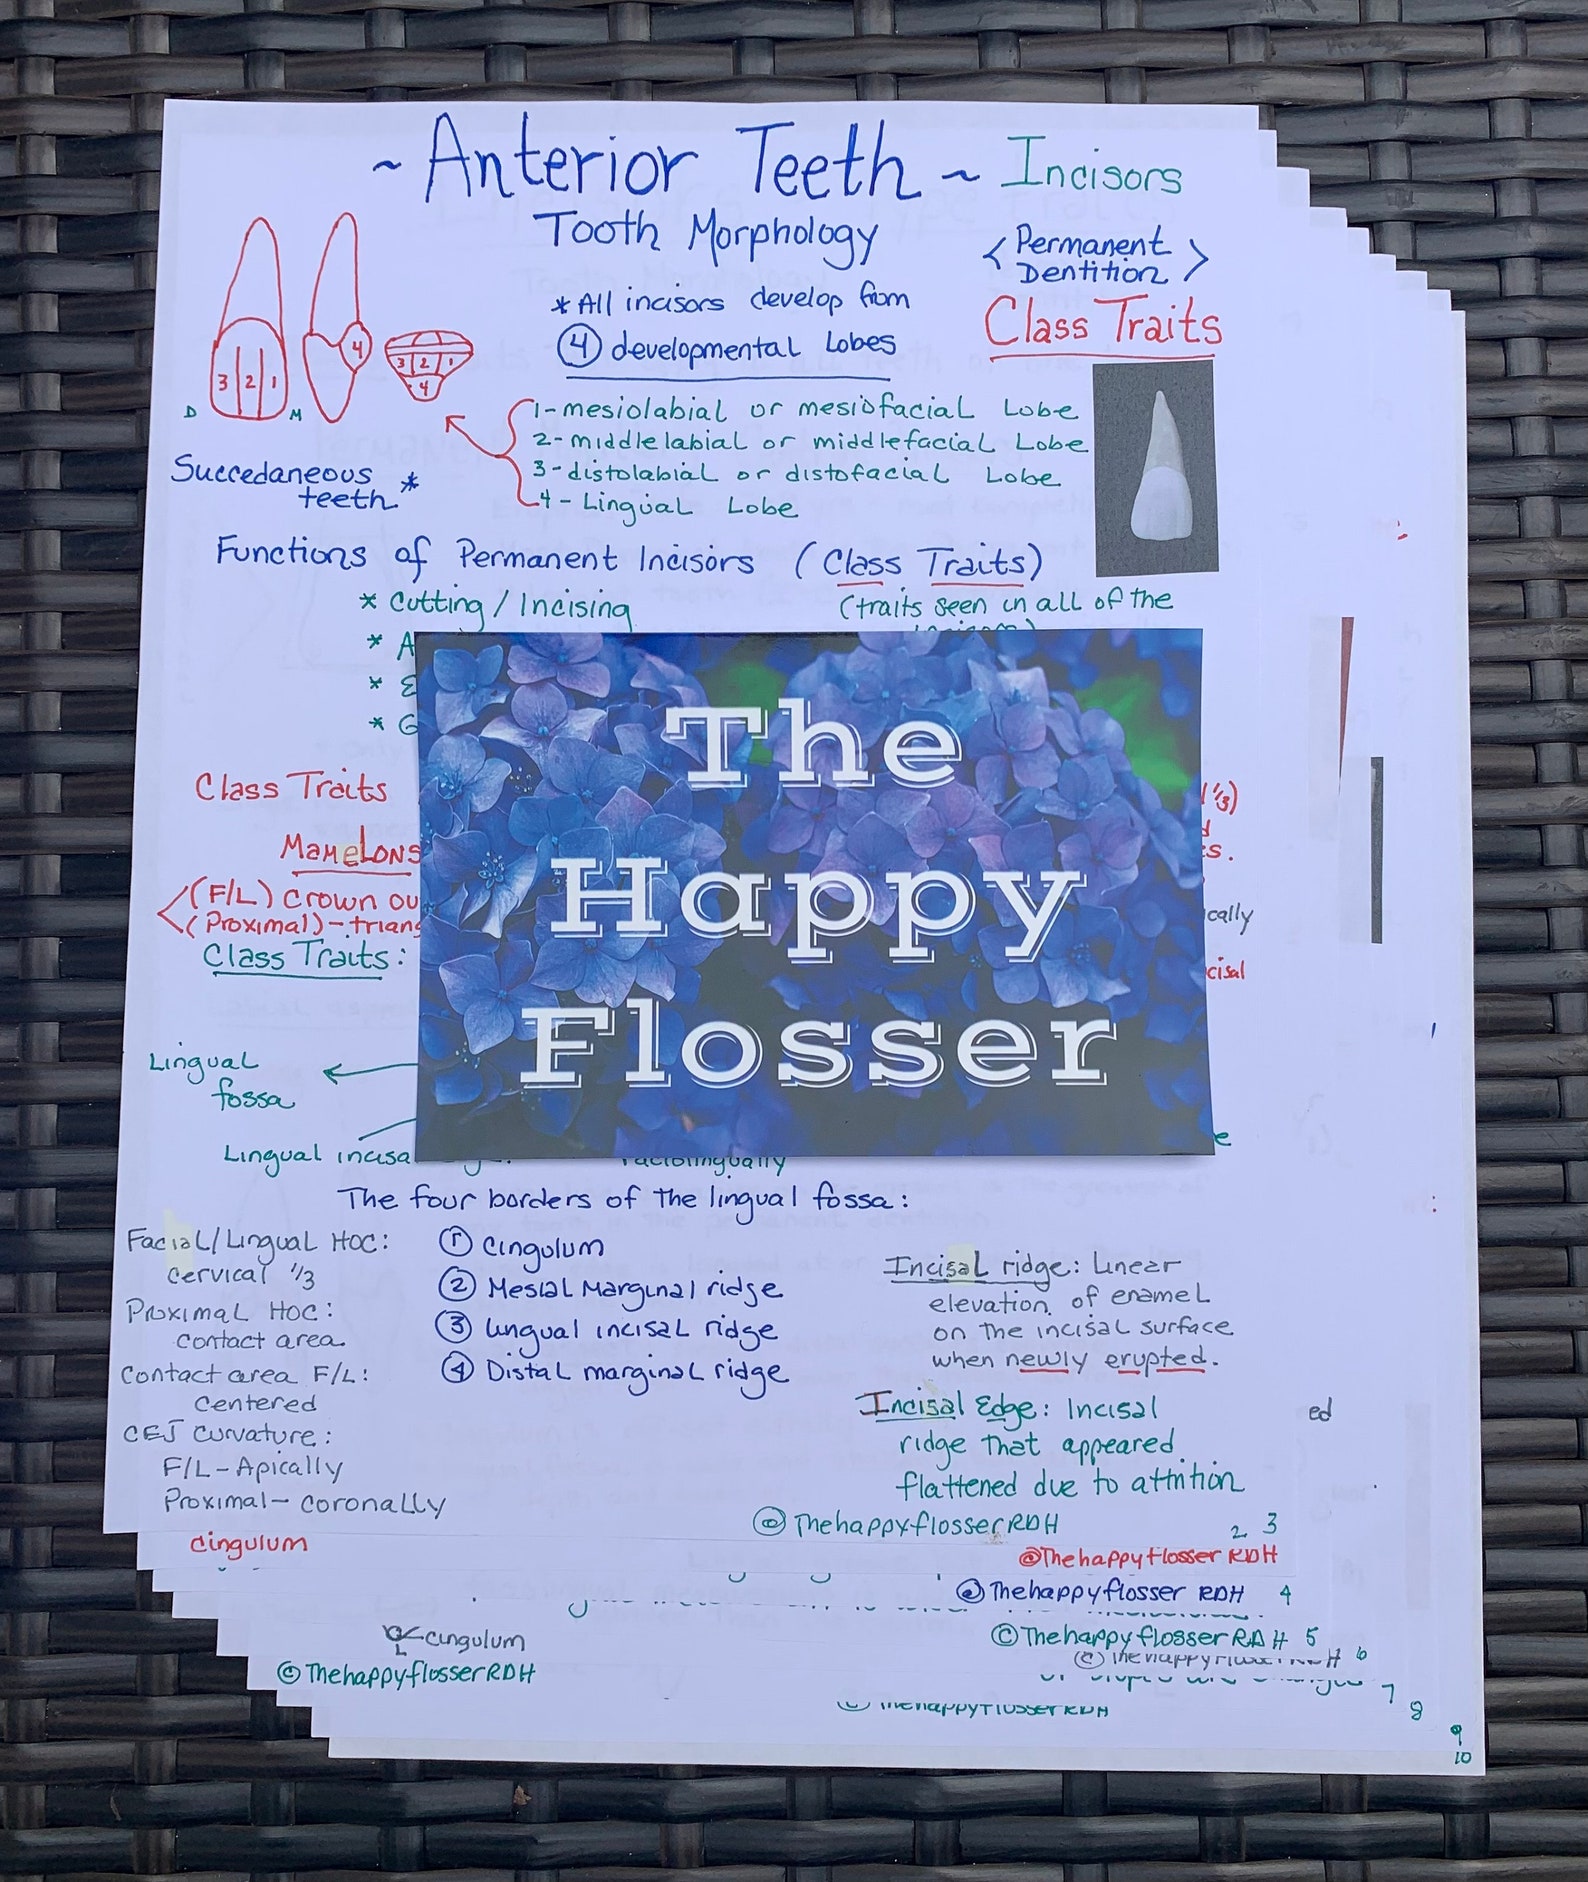 ~ Anterior Teeth ~ Incisors
Tooth Morphology
< Permanent
Dentition >
Class Traits
*All incisors develop from
4 developmental Lobes
3 2 1
4
3 2 1
4
D M
1-mesiolabial or mesiofacial Lobe
2-middlelabial or middlefacial Lobe
3-distolabial or distofacial Lobe
4- Lingual Lobe
Succedaneous
teeth *
Functions of Permanent Incisors (Class Traits)
* Cutting / Incising
(traits seen in all of the
* A
* E
* G
The
Happy
Flosser
Class Traits
1/3)
Mamelons
s.
(F/L) Crown ou
cally
(Proximal)-triang
Class Traits:
cisal
Lingual
fossa
Lingual incisa
e
Faciolingually
The four borders of the lingual fossa:
Facial/Lingual HOC:
Cervical 1/3
Proximal HOC:
contact area
Contact area F/L:
Centered
CEJ Curvature:
F/L-Apically
Proximal- coronally
① Cingulum
② Mesial Marginal ridge
③ Lingual incisal ridge
④ Distal marginal ridge
Incisal ridge: Linear
elevation of enamel
on the incisal surface
when newly erupted.
Incisal Edge: Incisal
ridge that appeared
flattened due to attrition
ed
©ThehappyflosserRDH
3
2
cingulum
©Thehappyflosser RDH
©Thehappyflosser RDH 4
cingulum
©ThehappyflosserRDH 5
©ThehappyflosserRDH 6
©ThehappyflosserRDH
7
©ThehappyflosserRDH
8
9
10